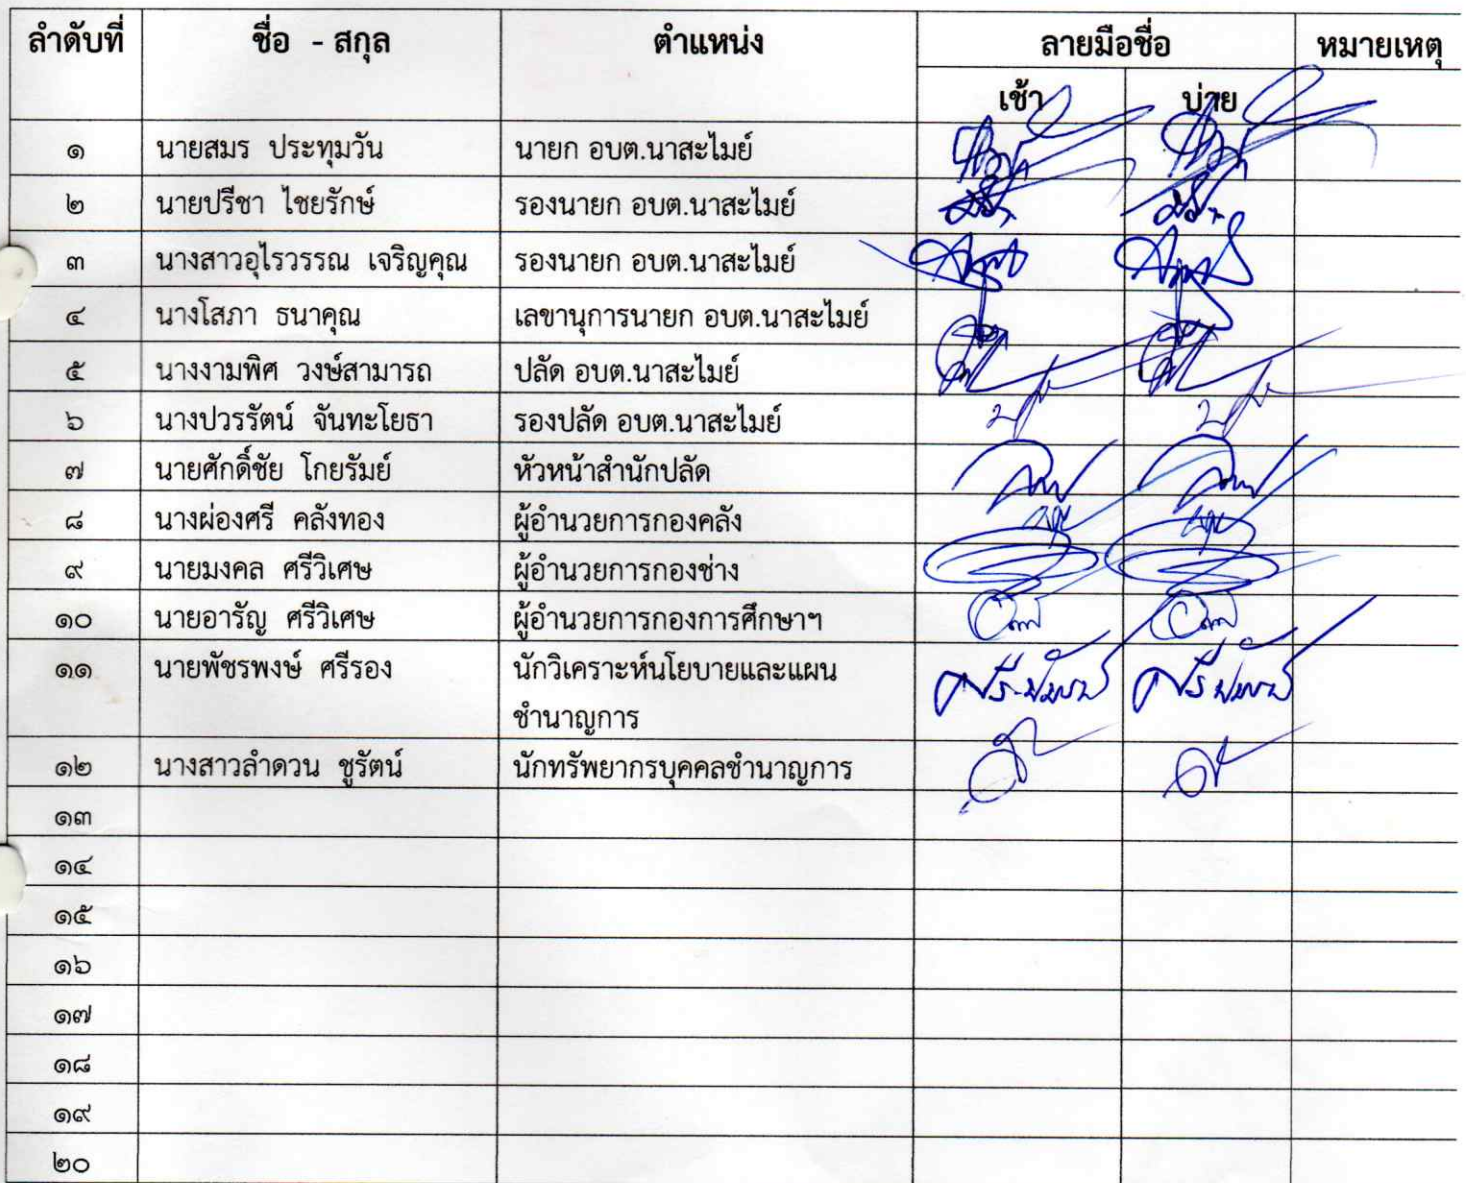 ลำดับที่ ชื่อ - สกุล ตำแหน่ง ลายมือชื่อ หมายเหตุ
เช้า บ่าย
๑ นายสมร ประทุมวัน นายก อบต.นาสะไมย์
๒ นายปรีชา ไชยรักษ์ รองนายก อบต.นาสะไมย์
๓ นางสาวอุไรวรรณ เจริญคุณ รองนายก อบต.นาสะไมย์
๔ นางโสภา ธนาคุณ เลขานุการนายก อบต.นาสะไมย์
๕ นางงามพิศ วงษ์สามารถ ปลัด อบต.นาสะไมย์
๖ นางปวรรัตน์ จันทะโยธา รองปลัด อบต.นาสะไมย์
๗ นายศักดิ์ชัย โกยรัมย์ หัวหน้าสำนักปลัด
๘ นางผ่องศรี คลังทอง ผู้อำนวยการกองคลัง
๙ นายมงคล ศรีวิเศษ ผู้อำนวยการกองช่าง
๑๐ นายอารัญ ศรีวิเศษ ผู้อำนวยการกองการศึกษาฯ
๑๑ นายพัชรพงษ์ ศรีรอง นักวิเคราะห์นโยบายและแผน
ชำนาญการ
๑๒ นางสาวลำดวน ชูรัตน์ นักทรัพยากรบุคคลชำนาญการ
๑๓
๑๔
๑๕
๑๖
๑๗
๑๘
๑๙
๒๐